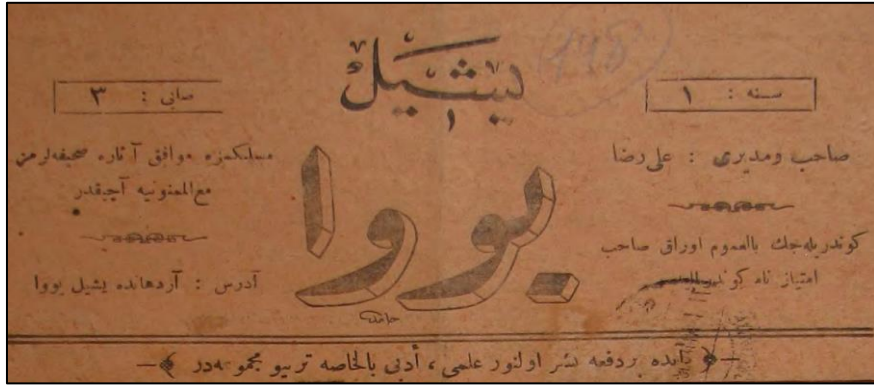 سنه : ١
صاحب ومديرى : على رضا
كوندريله جك بالعموم اوراق صاحب
امتياز نامنه كوندريليدر
يشيل
يووا
حامد
صايى : ٣
مسلكمزه موافق آثاره صحيفه لرمز
مع الممنونيه آچيقدر
آدرس : آردهانده يشيل يووا
آيده بردفعه نشر اولنور علمى ، أدبى بالخاصه تربيوى مجموعه در